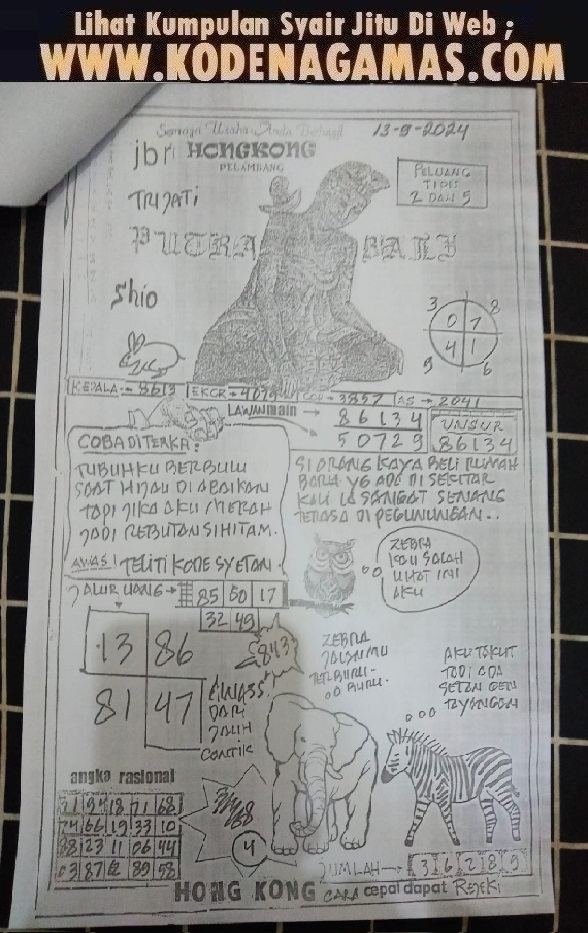 Lihat Kumpulan Syair Jitu Di Web ;
WWW.KODENAGAMAS.COM
Semoga Usaha Anda Berhasil
13-9-2024
jbr HONGKONG
PELAMBANG
PELUANG
TIPIS
2 DAN 5
TRIJATI
PUTRA BALI
Shio
3 8
0 7
4 1
9 6
KEPALA → 8613
EKOR → 4079
COP → 3857
AS → 2041
LAWAN main → 86134
50729
UNSUR
86134
COBA DITERKA:
TUBUHKU BERBULU
SAAT HIJAU DI ABAIKAN
TAPI JIKA AKU MERAH
JADI REBUTAN SI HITAM.
AWAS! TELITI KODE SYETAN.
SI ORANG KAYA BELI RUMAH
BARU YG ADA DI SEKITAR
KALI IA SANGAT SENANG
TERASA DI PEGUNUNGAN..
ZEBRA
KAU SALAH
LIHAT INI
AKU
JALUR UANG →
85 50 17
32 49
13 86
81 47
843
AWASS
DARI
JAUH
CANTIK
ZEBRA
JALANMU
BURU.
AKU TAKUT
TADI ADA
SETAN GEN
TAYANGAN
angka rasional
31 94 18 71 68
74 66 19 33 10
98 23 11 06 44
03 87 62 89 58
4
JUMLAH → 3 6 2 8 9
HONG KONG CARA cepat dapat REJEKI